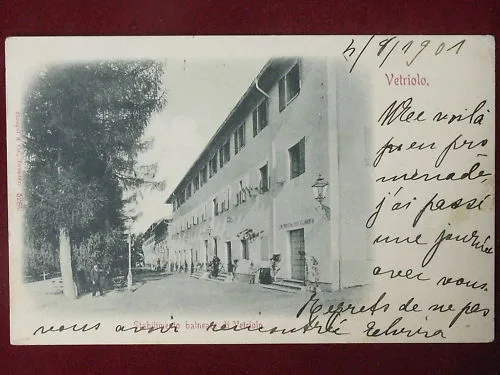 4/8/1901
Vetriolo.
Mee voilà
pour en pro
menade,
j'ai passé
une journée
avec vous.
Regrets de ne pas
vous avoir rencontré Elvira
Stabilimento balneare di Vetriolo